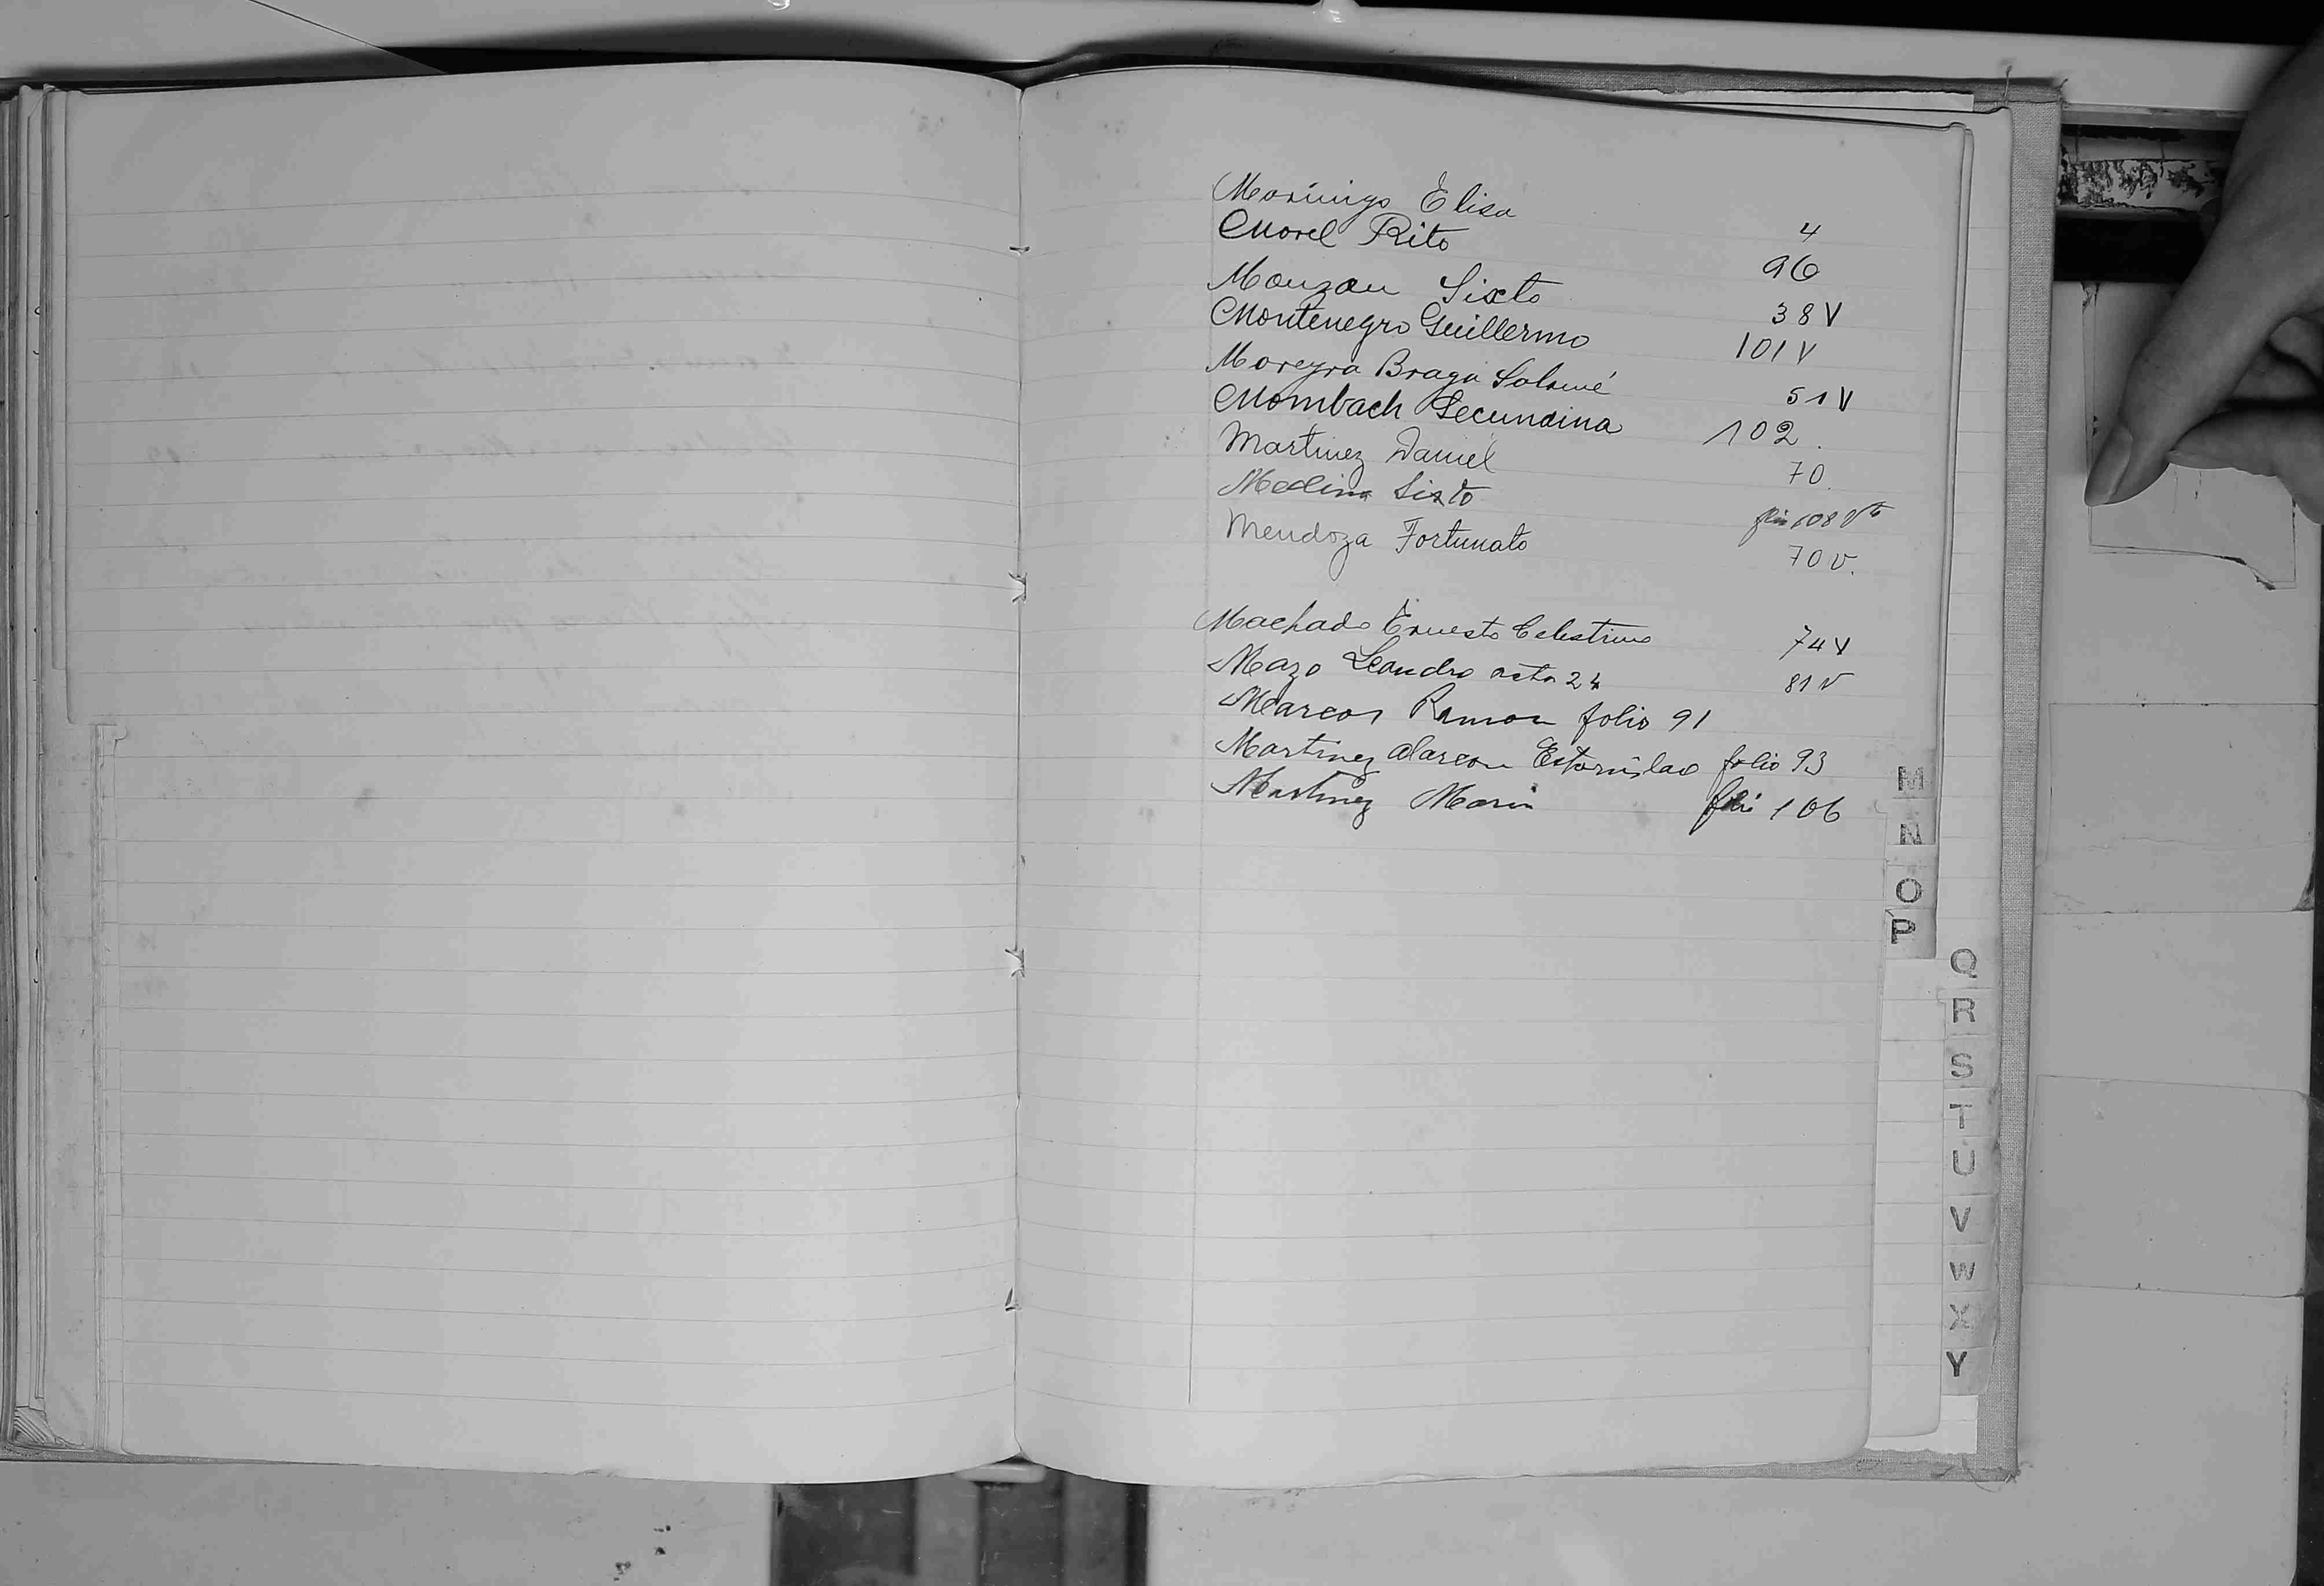 Morínigo Elisa 4
Morel Rito 96
Monzon Sixto 38 V
Montenegro Guillermo 101 V
Moreyra Braga Salomé 51 V
Mombach Secundina 102.
Martinez Daniel 70.
Medina Sixto folio 108 Vto
Mendoza Fortunato 70 v.
Machado Ernesto Celestino 74 V
Mazo Leandro acta 24 81 v
Marcos Ramon folio 91
Martinez Alarcon Estanislao folio 93
Martinez Maria folio 106
M
N
O
P
Q
R
S
T
U
V
W
X
Y